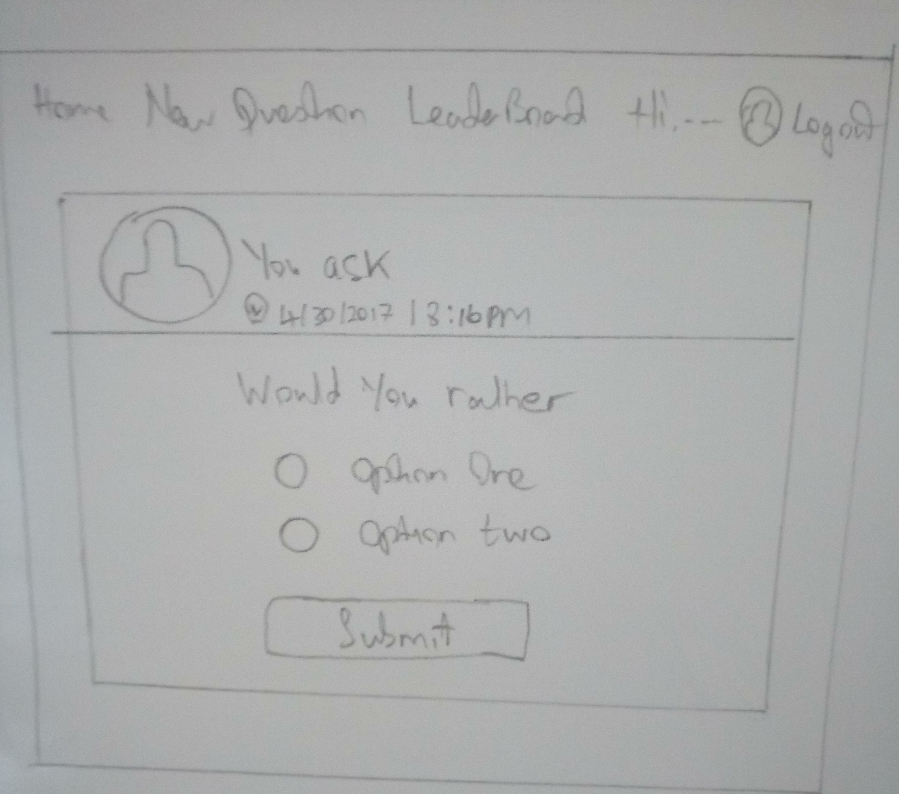 Home New Question LeaderBoard Hi,--- Logout
You ask
4/30/2017 | 3:16pm
Would You rather
Option One
Option two
Submit